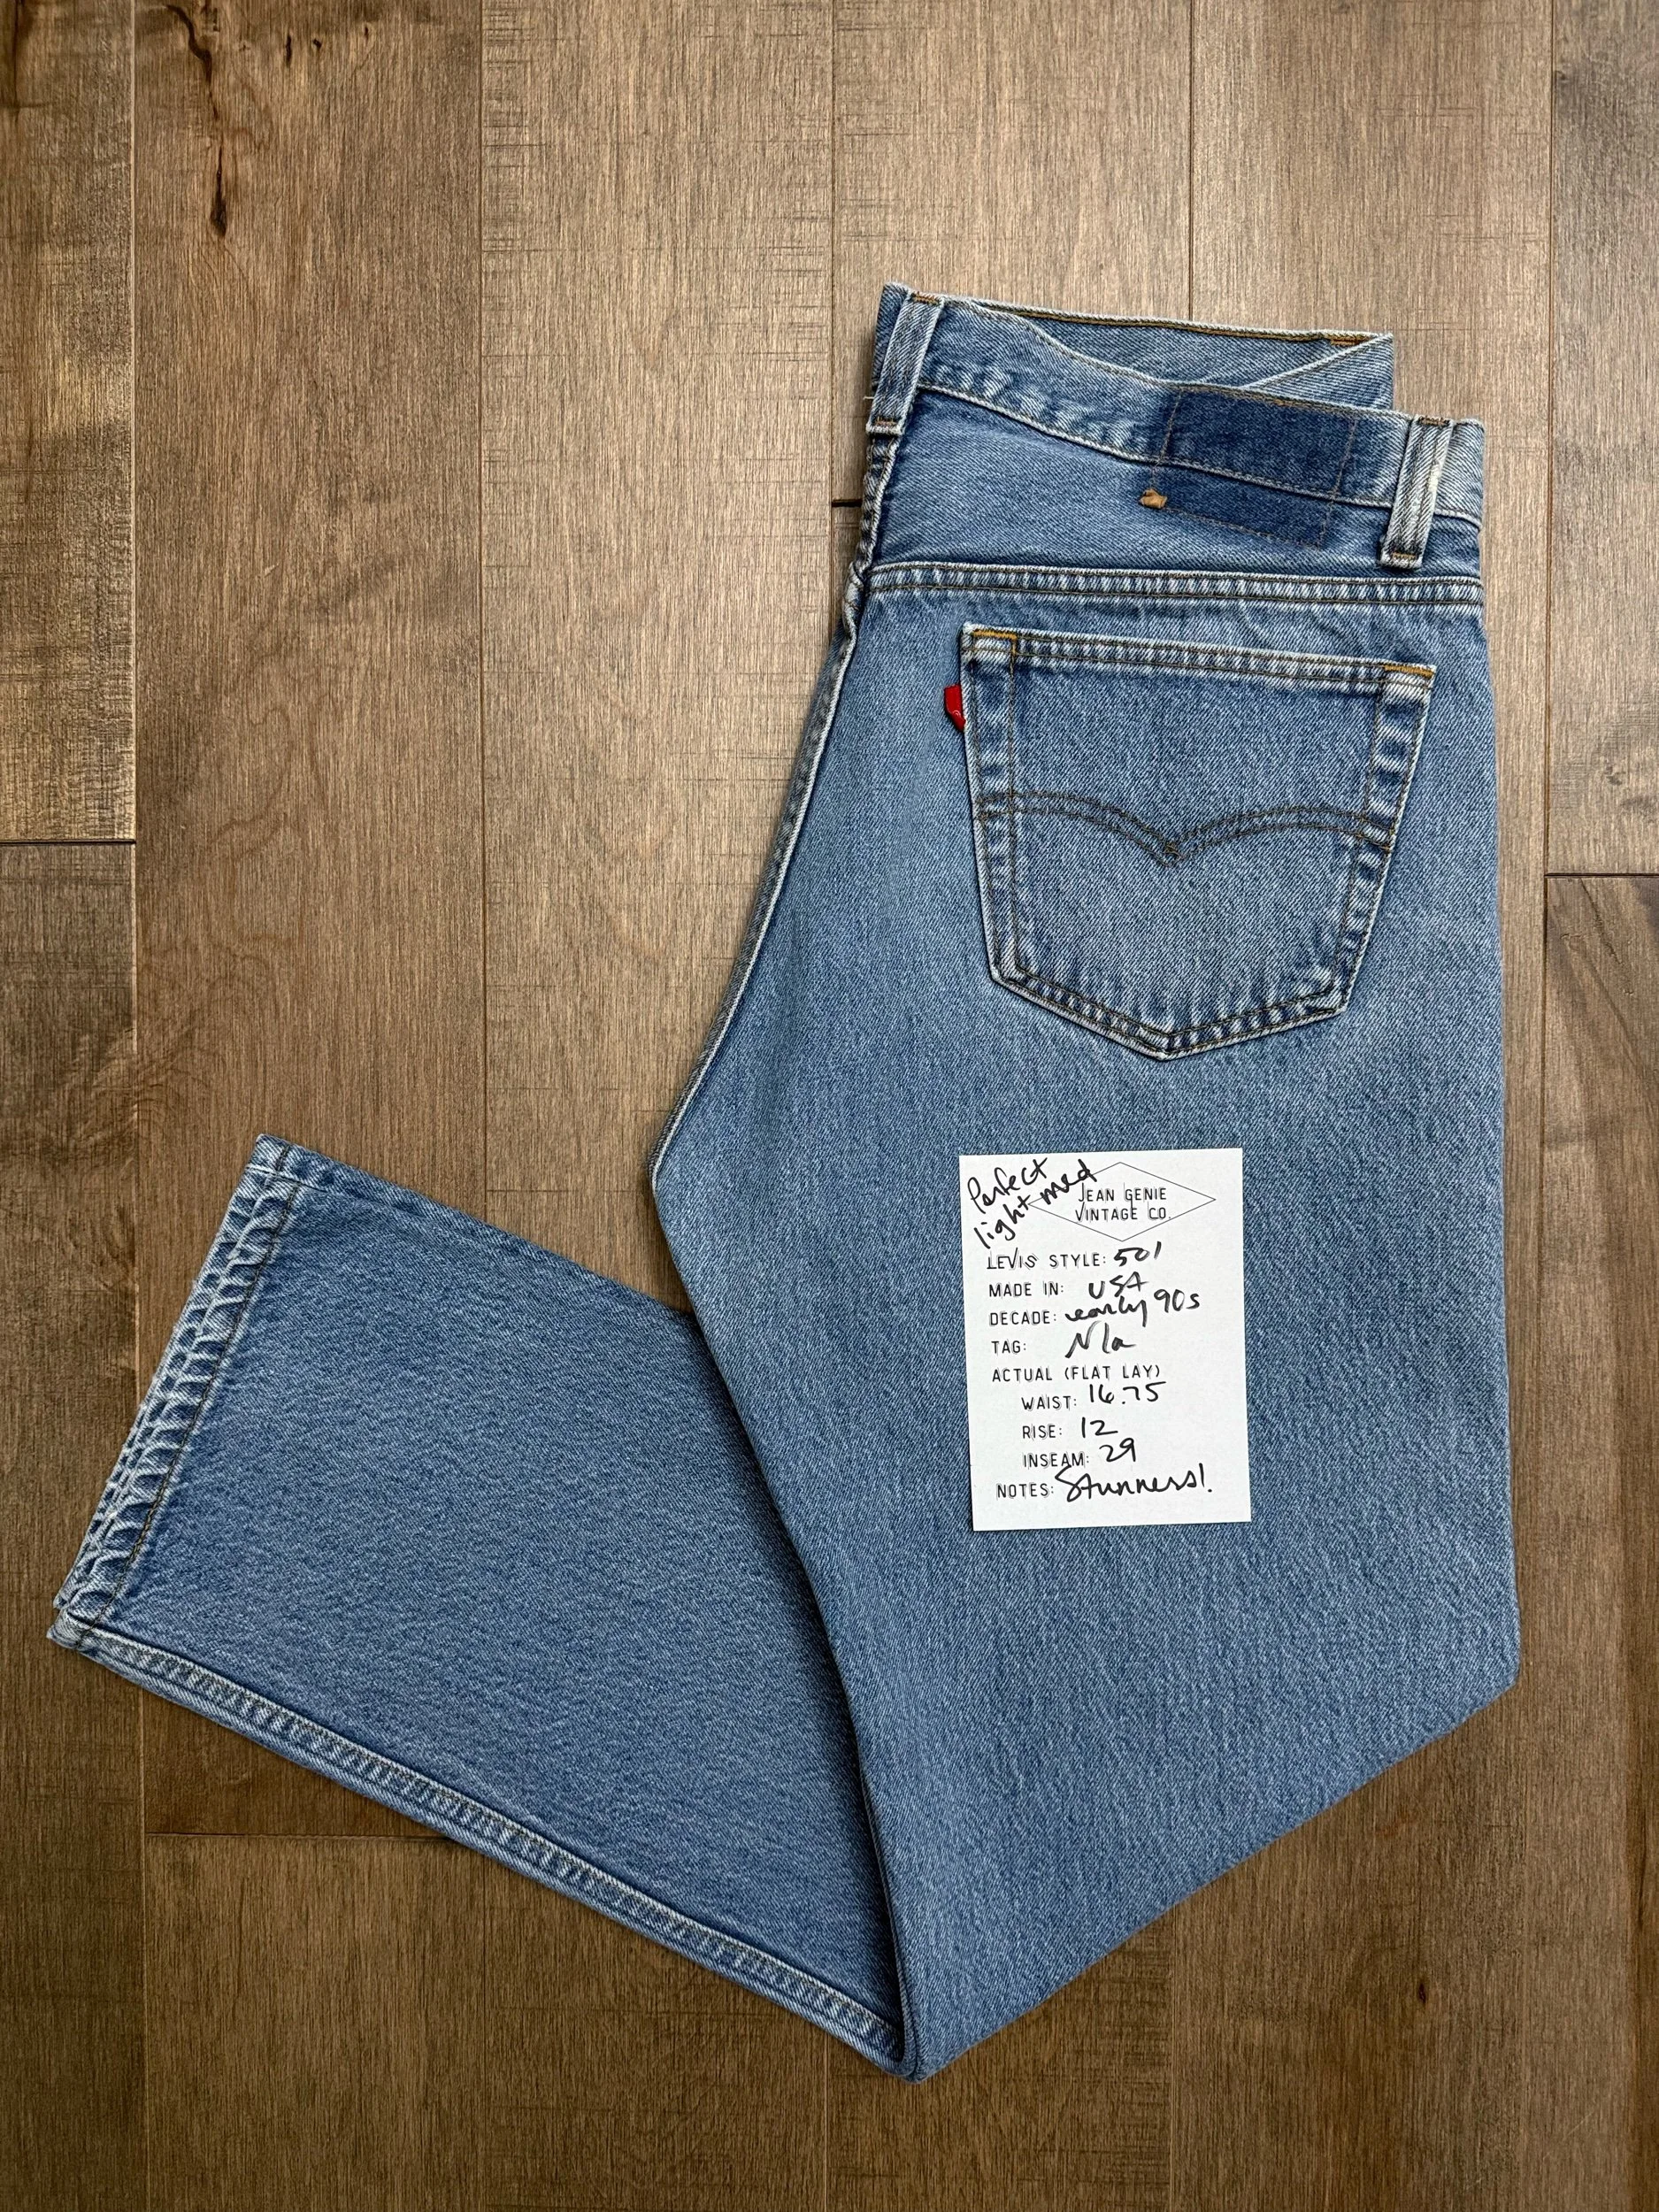 Perfect
light med
JEAN GENIE
VINTAGE CO.
LEVIS STYLE: 501
MADE IN: USA
DECADE: early 90s
TAG: N/a
ACTUAL (FLAT LAY)
WAIST: 16.75
RISE: 12
INSEAM: 29
NOTES: Stunners!